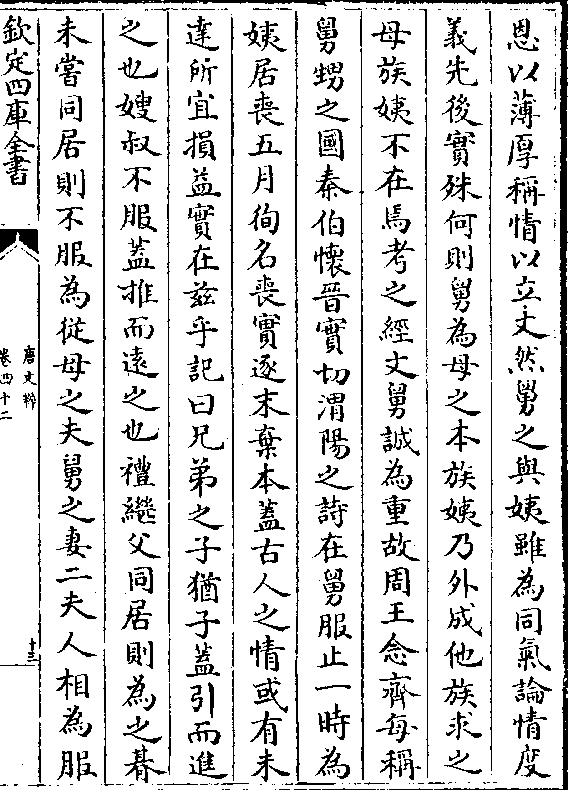 恩以薄厚稱情以立文然舅之與姨雖為同氣論情度
義先後實殊何則舅為母之本族姨乃外成他族求之
母族姨不在焉考之經文舅誠為重故周王念齊每稱
舅甥之國秦伯懷晉實切渭陽之詩在舅服止一時為
姨居喪五月徇名喪實逐末棄本蓋古人之情或有未
達所宜損益實在兹乎記曰兄弟之子猶子蓋引而進
之也嫂叔不服蓋推而遠之也禮繼父同居則為之朞
未嘗同居則不服為從母之夫舅之妻二夫人相為服
欽定四庫全書
唐文粹
卷四十二
十三